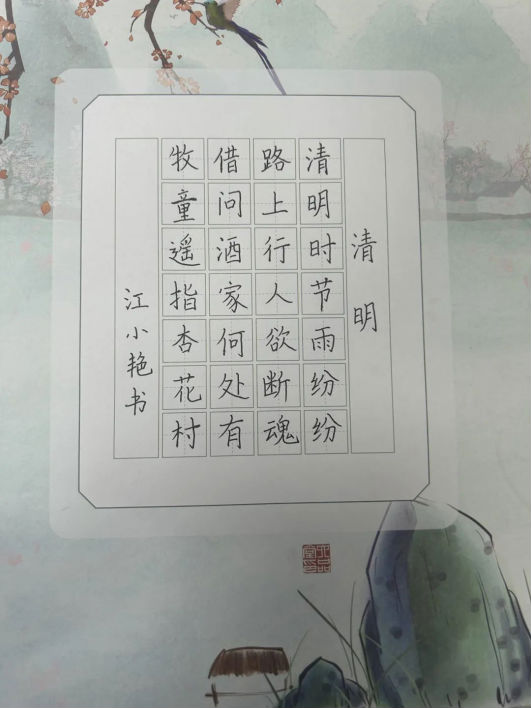 清明
清明时节雨纷纷
路上行人欲断魂
借问酒家何处有
牧童遥指杏花村
江小艳书